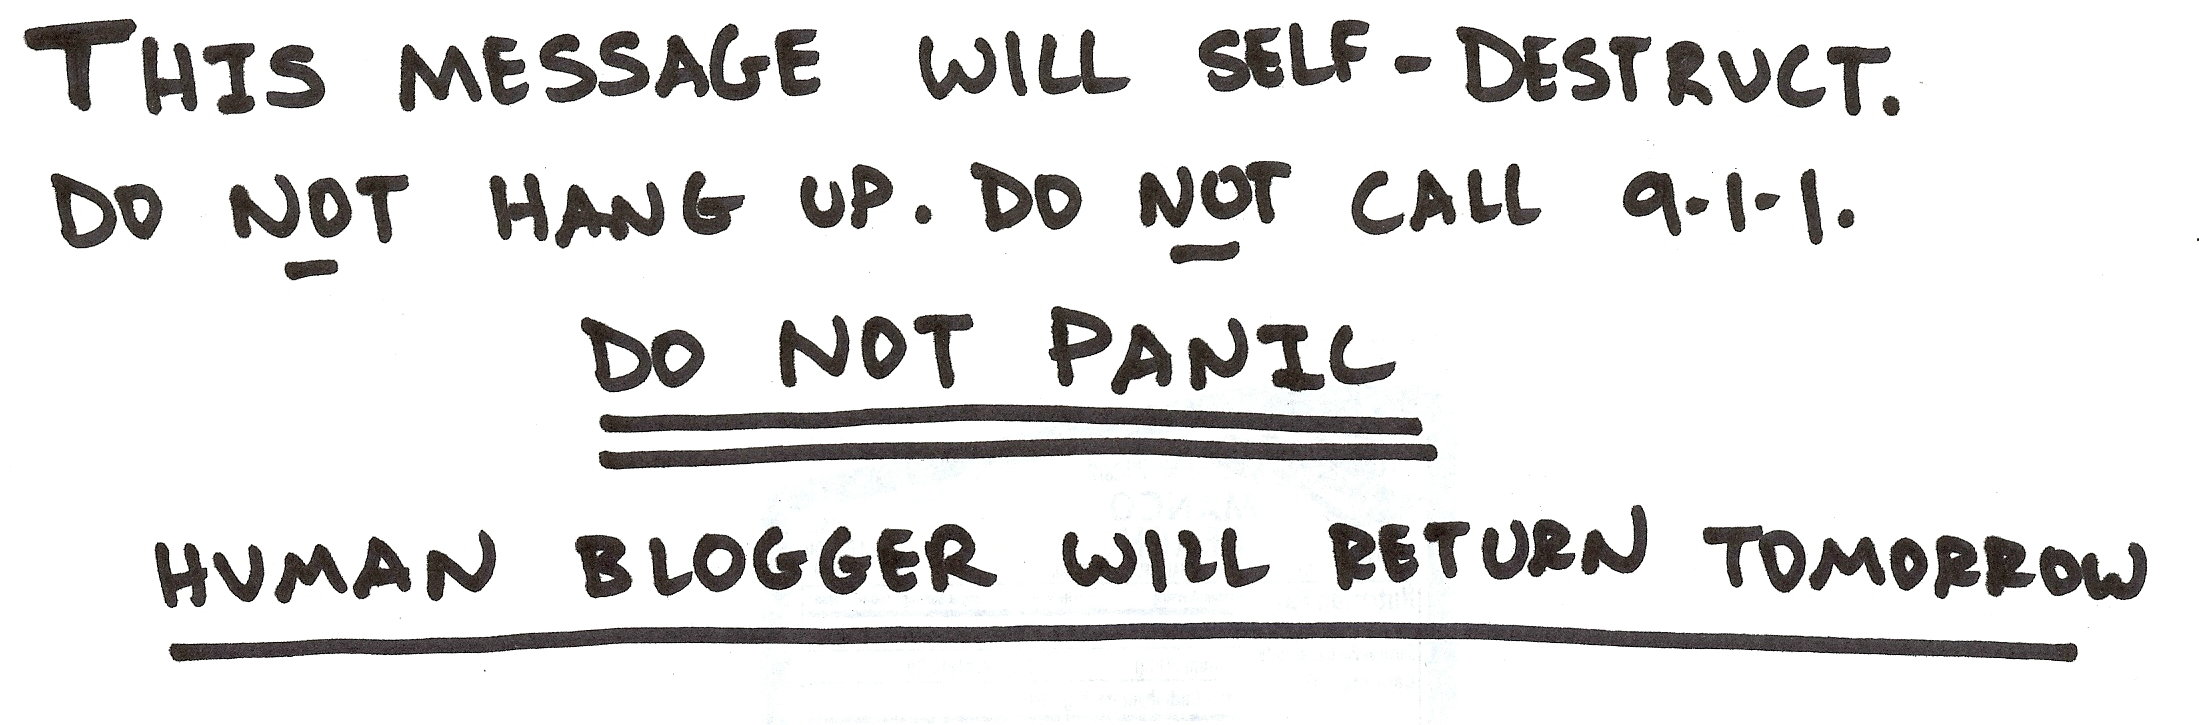 THIS MESSAGE WILL SELF-DESTRUCT.
DO NOT HANG UP. DO NOT CALL 9-1-1.
DO NOT PANIC
HUMAN BLOGGER WILL RETURN TOMORROW